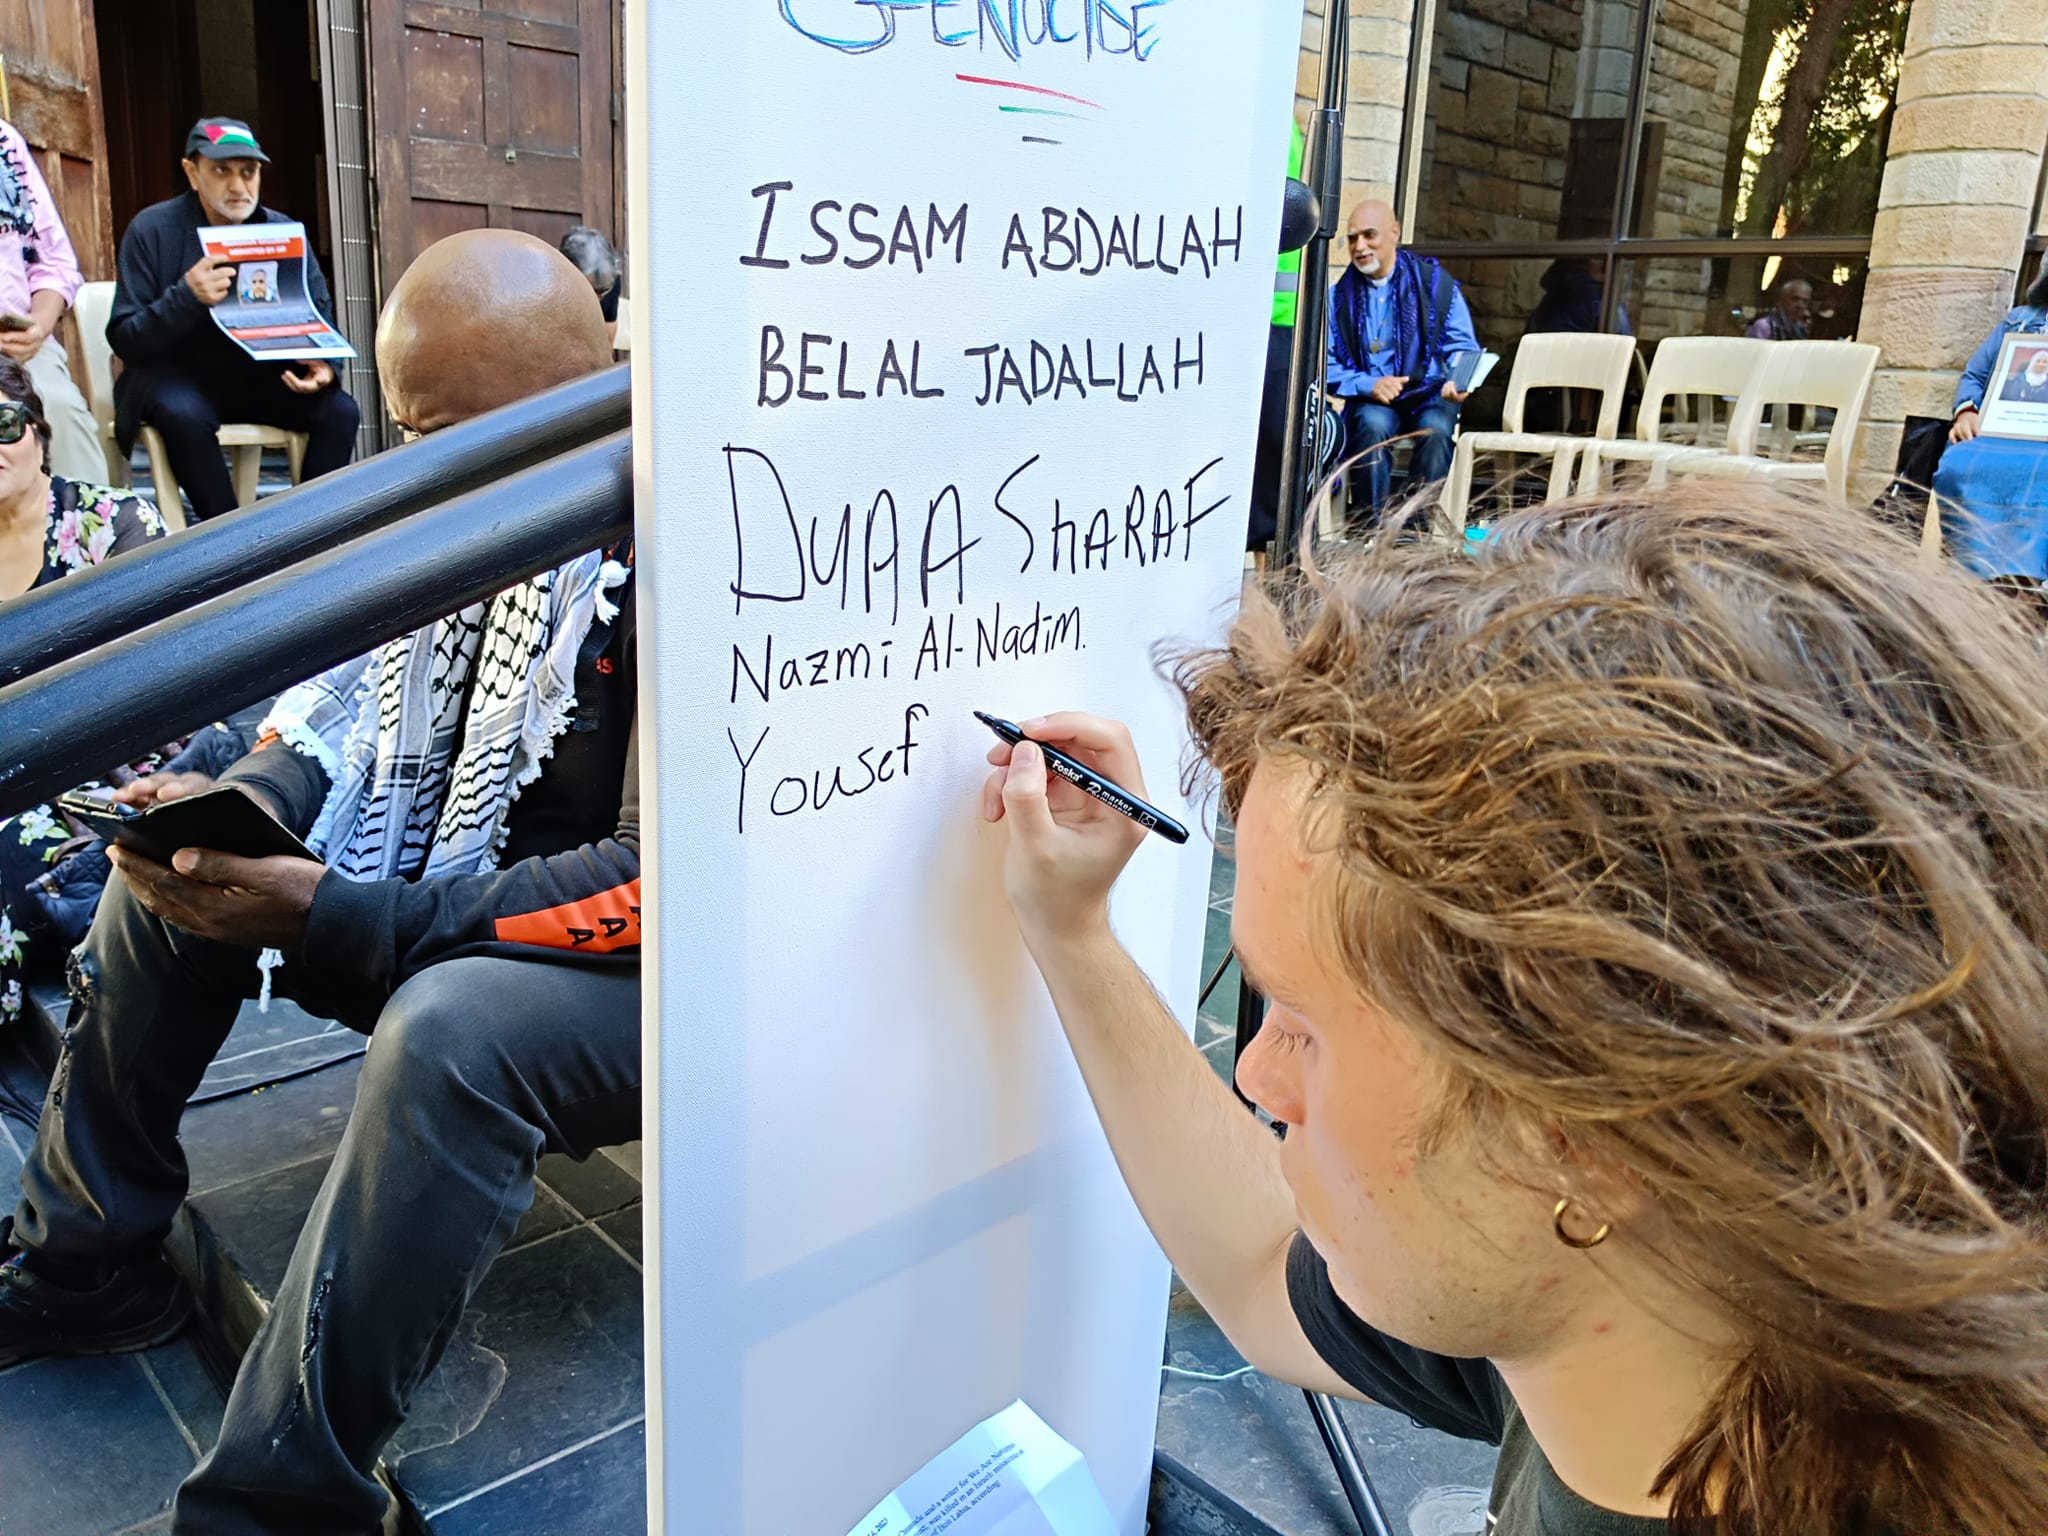 GENOCIDE
ISSAM ABDALLAH
BELAL JADALLAH
DUAA SHARAF
Nazmi Al-Nadim.
Yousef
Foska
marker
and a writer for We Are Not
was killed in an Israeli
of Beit Lahia, according